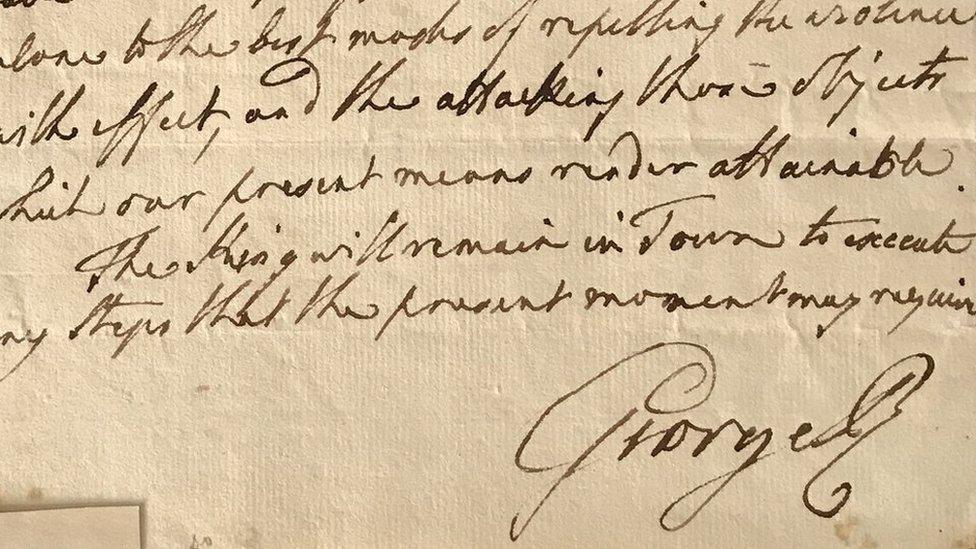 alone to the best modes of repelling the violence
with effect, and the attacking those objects
which our present means render attainable.
The King will remain in Town to execute
any steps that the present moment may require
George R